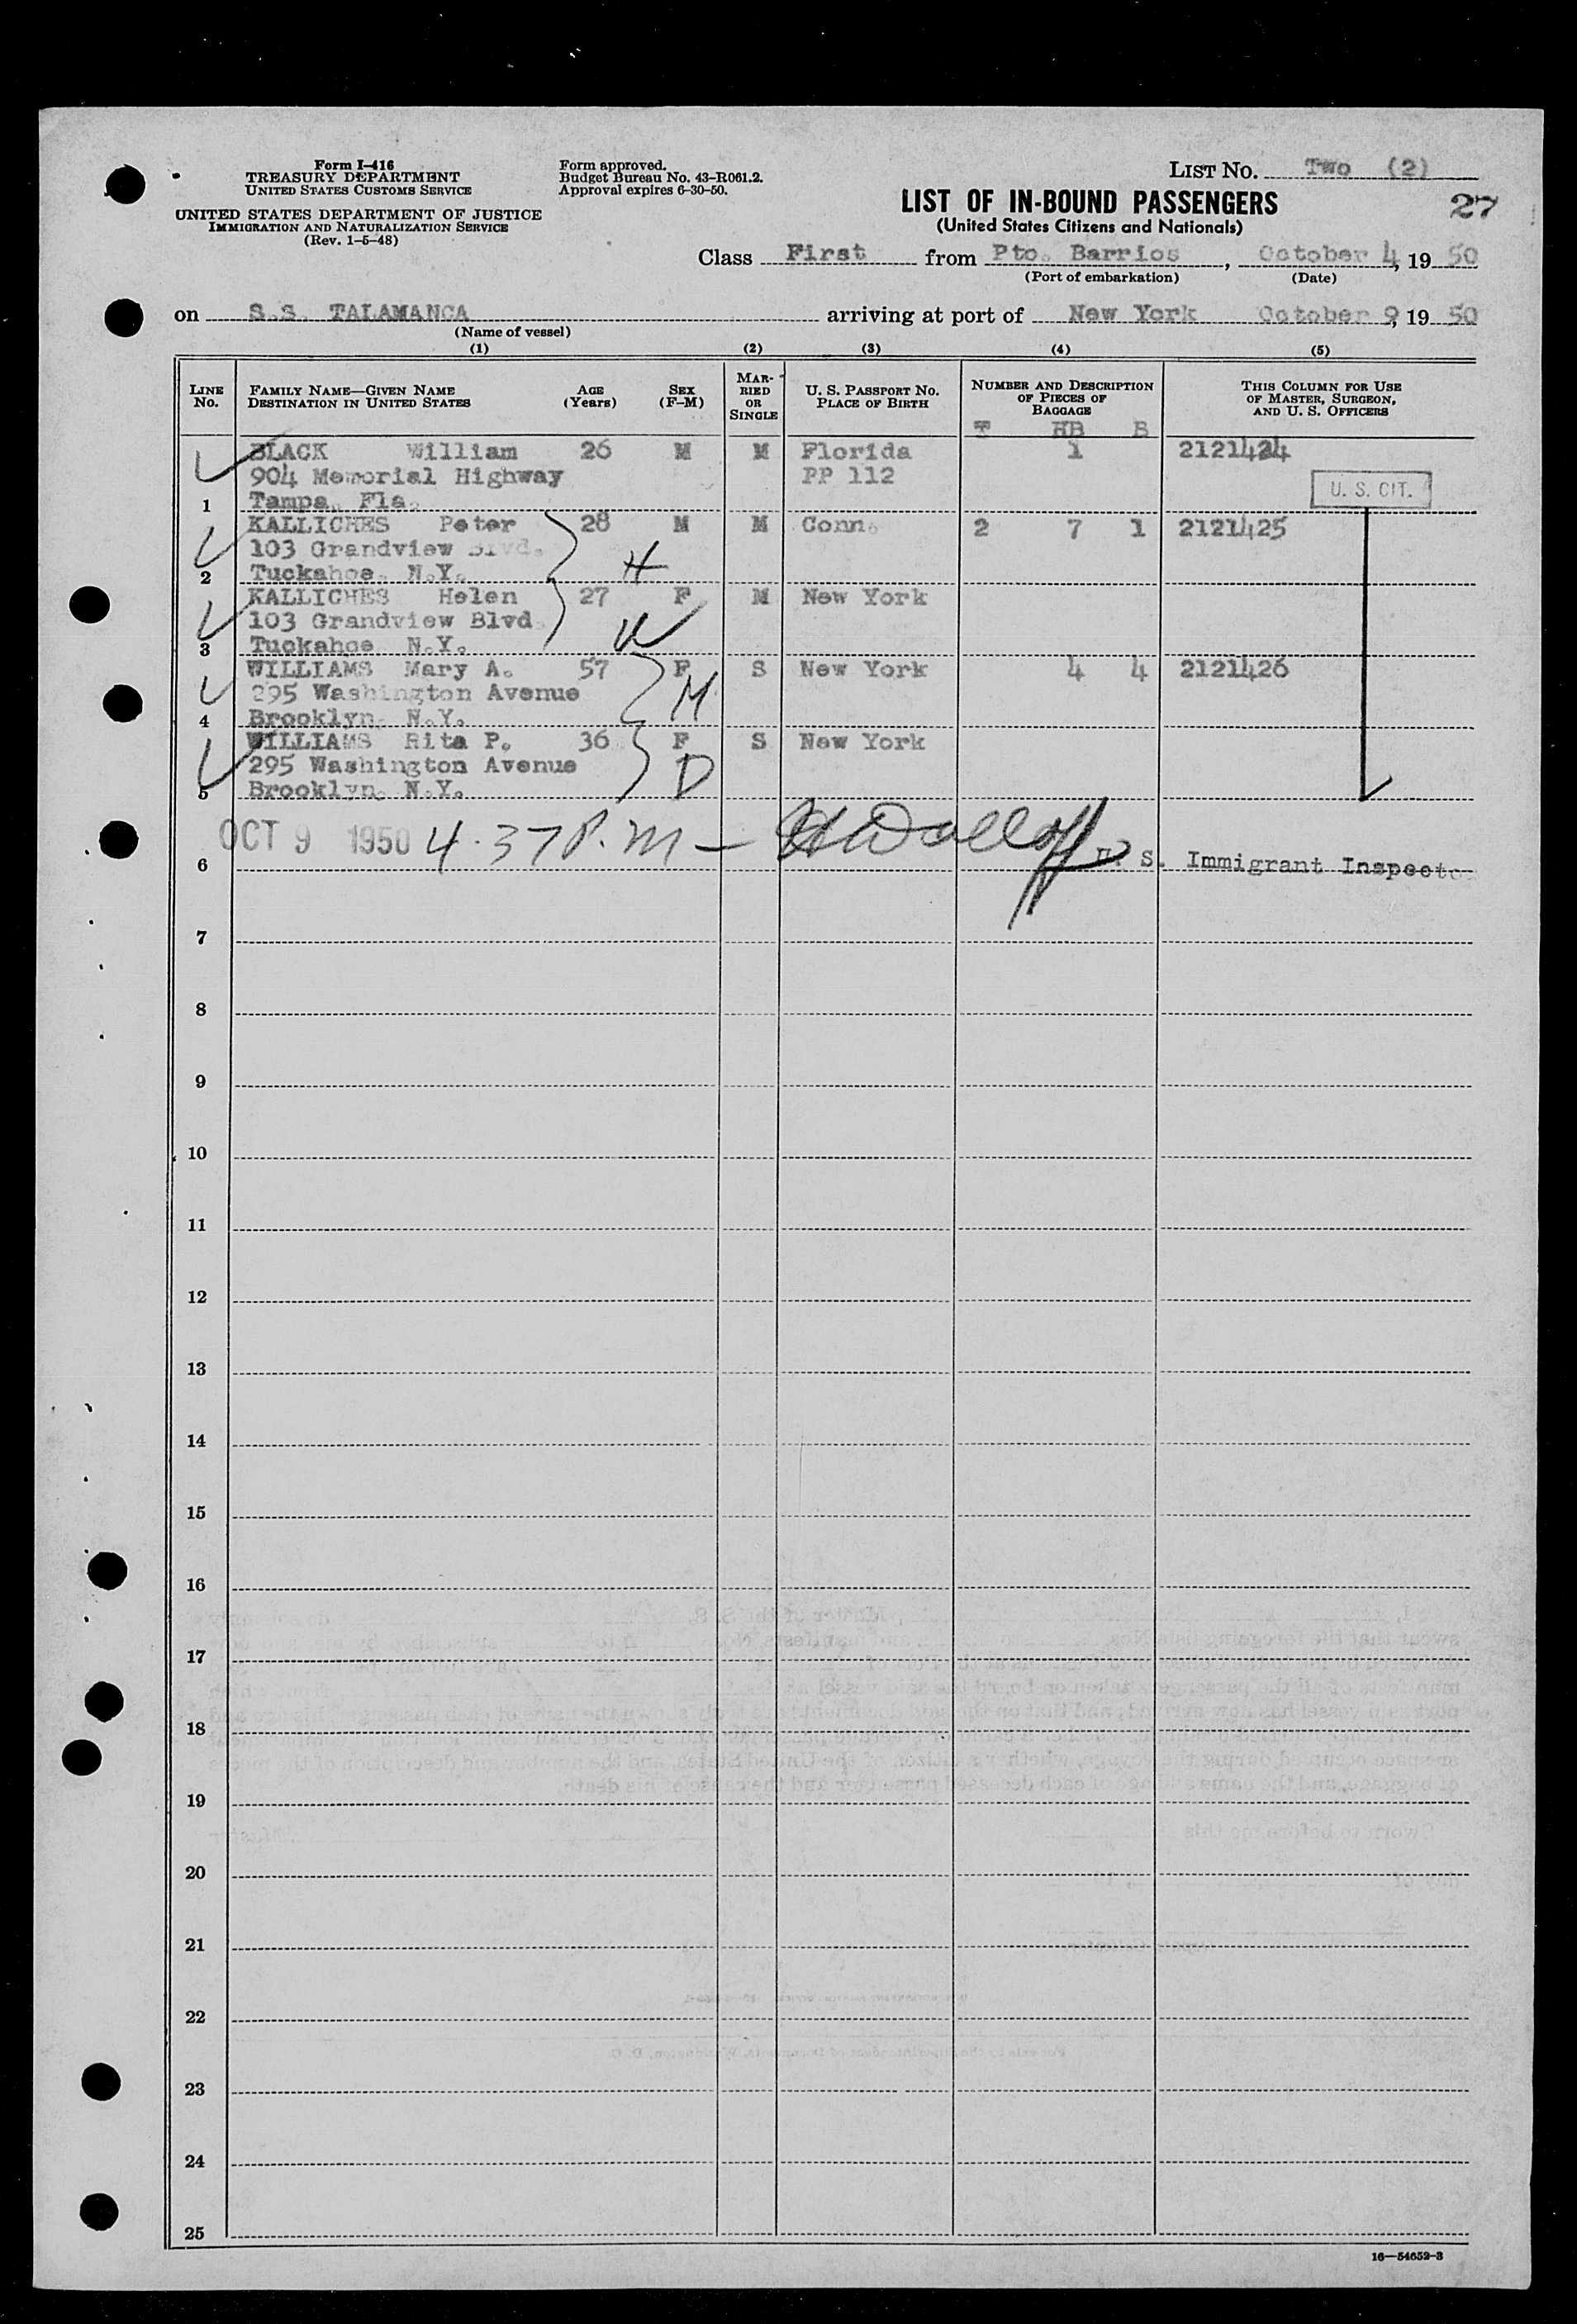 Form I-416
TREASURY DEPARTMENT
UNITED STATES CUSTOMS SERVICE
UNITED STATES DEPARTMENT OF JUSTICE
IMMIGRATION AND NATURALIZATION SERVICE
(Rev. 1-5-48)
Form approved.
Budget Bureau No. 43-R061.2.
Approval expires 6-30-50.
LIST NO. Two (2)
LIST OF IN-BOUND PASSENGERS
27
(United States Citizens and Nationals)
Class First from Pto. Barrios, October 4, 19 50
(Port of embarkation) (Date)
on S.S. TALAMANCA arriving at port of New York October 9, 19 50
(Name of vessel)
(1) (2) (3) (4) (5)
LINE No.
FAMILY NAME—GIVEN NAME
DESTINATION IN UNITED STATES
AGE (Years)
SEX (F-M)
MAR-RIED OR SINGLE
U. S. PASSPORT NO.
PLACE OF BIRTH
NUMBER AND DESCRIPTION OF PIECES OF BAGGAGE
THIS COLUMN FOR USE OF MASTER, SURGEON, AND U. S. OFFICERS
T HB B
BLACK William 26 M M Florida 1 2121424
904 Memorial Highway PP 112
U. S. CIT.
1 Tampa, Fla.
KALLICHES Peter 28 M M Conn. 2 7 1 2121425
103 Grandview Blvd.
2 Tuckahoe, N.Y. H
KALLICHES Helen 27 F M New York
103 Grandview Blvd.
3 Tuckahoe N.Y. W
WILLIAMS Mary A. 57 F S New York 4 4 2121426
295 Washington Avenue
4 Brooklyn, N.Y. M
WILLIAMS Rita P. 36 F S New York
295 Washington Avenue
5 Brooklyn, N.Y. D
OCT 9 1950 4.37 P.M —
6 U. S. Immigrant Inspecto
7
8
9
10
11
12
13
14
15
16
17
18
19
20
21
22
23
24
25
16—54652-3